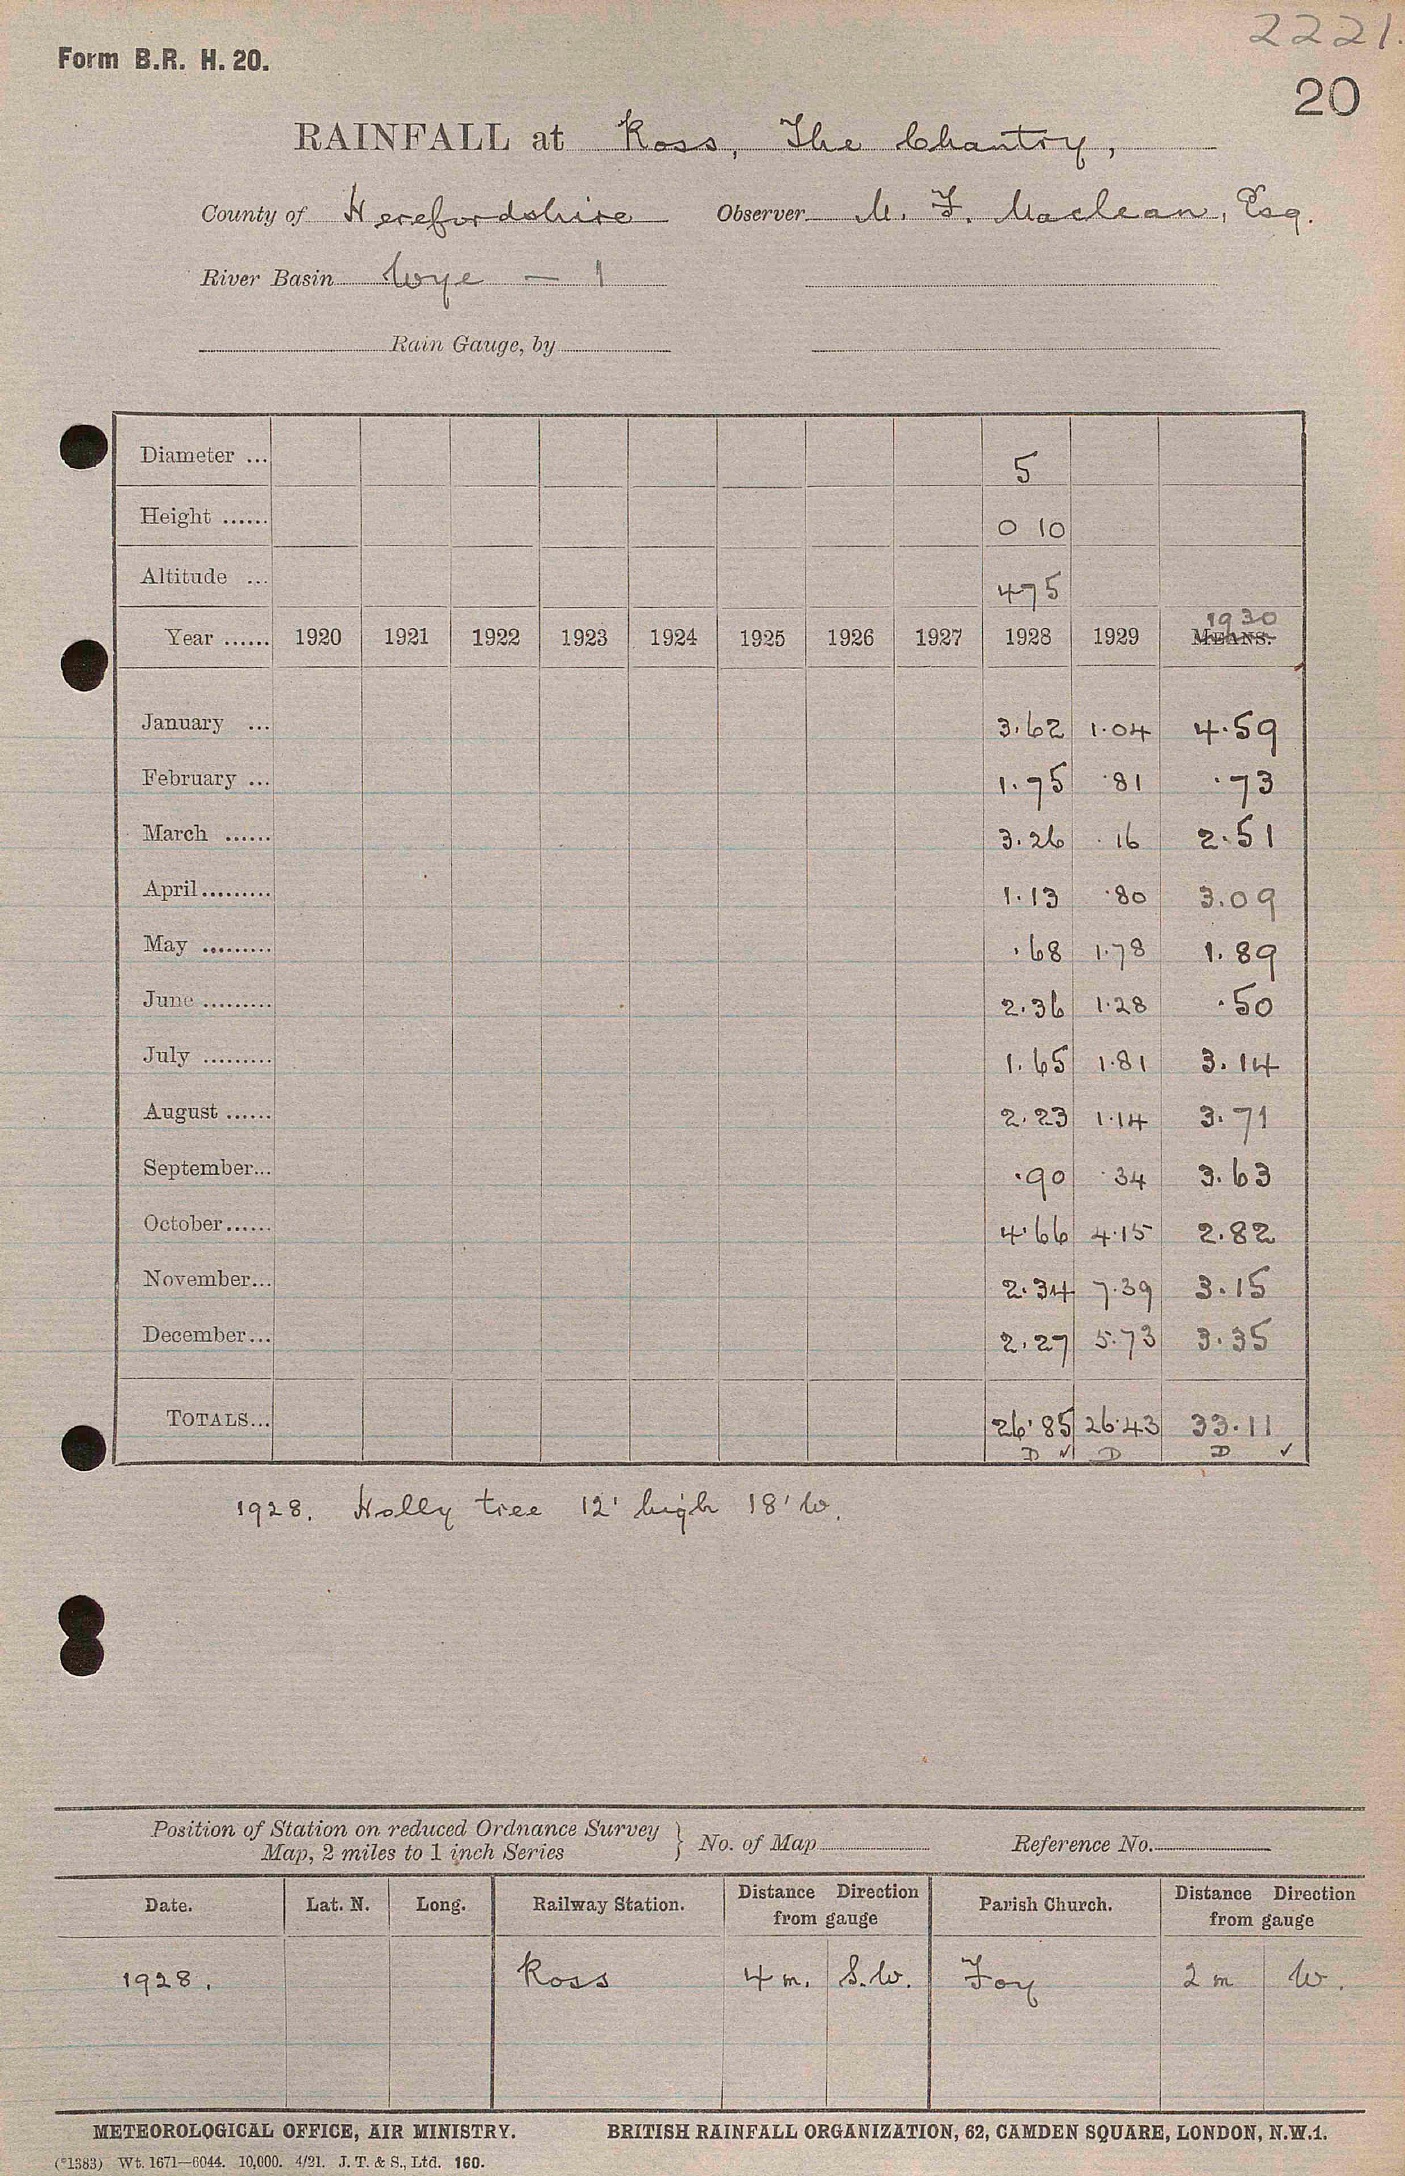 2221.
Form B.R. H. 20.
20
RAINFALL at Ross, The Chantry,
County of Herefordshire Observer M. F. Maclean, Esq.
River Basin Wye — 1
Rain Gauge, by
Diameter ... 5
Height ...... 0 10
Altitude ... 475
1930
Year ...... 1920 1921 1922 1923 1924 1925 1926 1927 1928 1929 MEANS.
January ... 3.62 1.04 4.59
February ... 1.75 .81 .73
March ...... 3.26 .16 2.51
April......... 1.13 .80 3.09
May ......... .68 1.78 1.89
June ......... 2.36 1.28 .50
July ......... 1.65 1.81 3.14
August ...... 2.23 1.14 3.71
September... .90 .34 3.63
October...... 4.66 4.15 2.82
November... 2.34 7.39 3.15
December... 2.27 5.73 3.35
TOTALS... 26.85 26.43 33.11
D ✓ D D ✓
1928. Holly tree 12' high 18' W.
Position of Station on reduced Ordnance Survey
Map, 2 miles to 1 inch Series } No. of Map Reference No.
Date. Lat. N. Long. Railway Station. Distance Direction from gauge Parish Church. Distance Direction from gauge
1928. Ross 4 m. S.W. Foy 2 m W.
METEOROLOGICAL OFFICE, AIR MINISTRY. BRITISH RAINFALL ORGANIZATION, 62, CAMDEN SQUARE, LONDON, N.W.1.
(*1383) Wt. 1671—6044. 10,000. 4/21. J. T. & S., Ltd. 160.